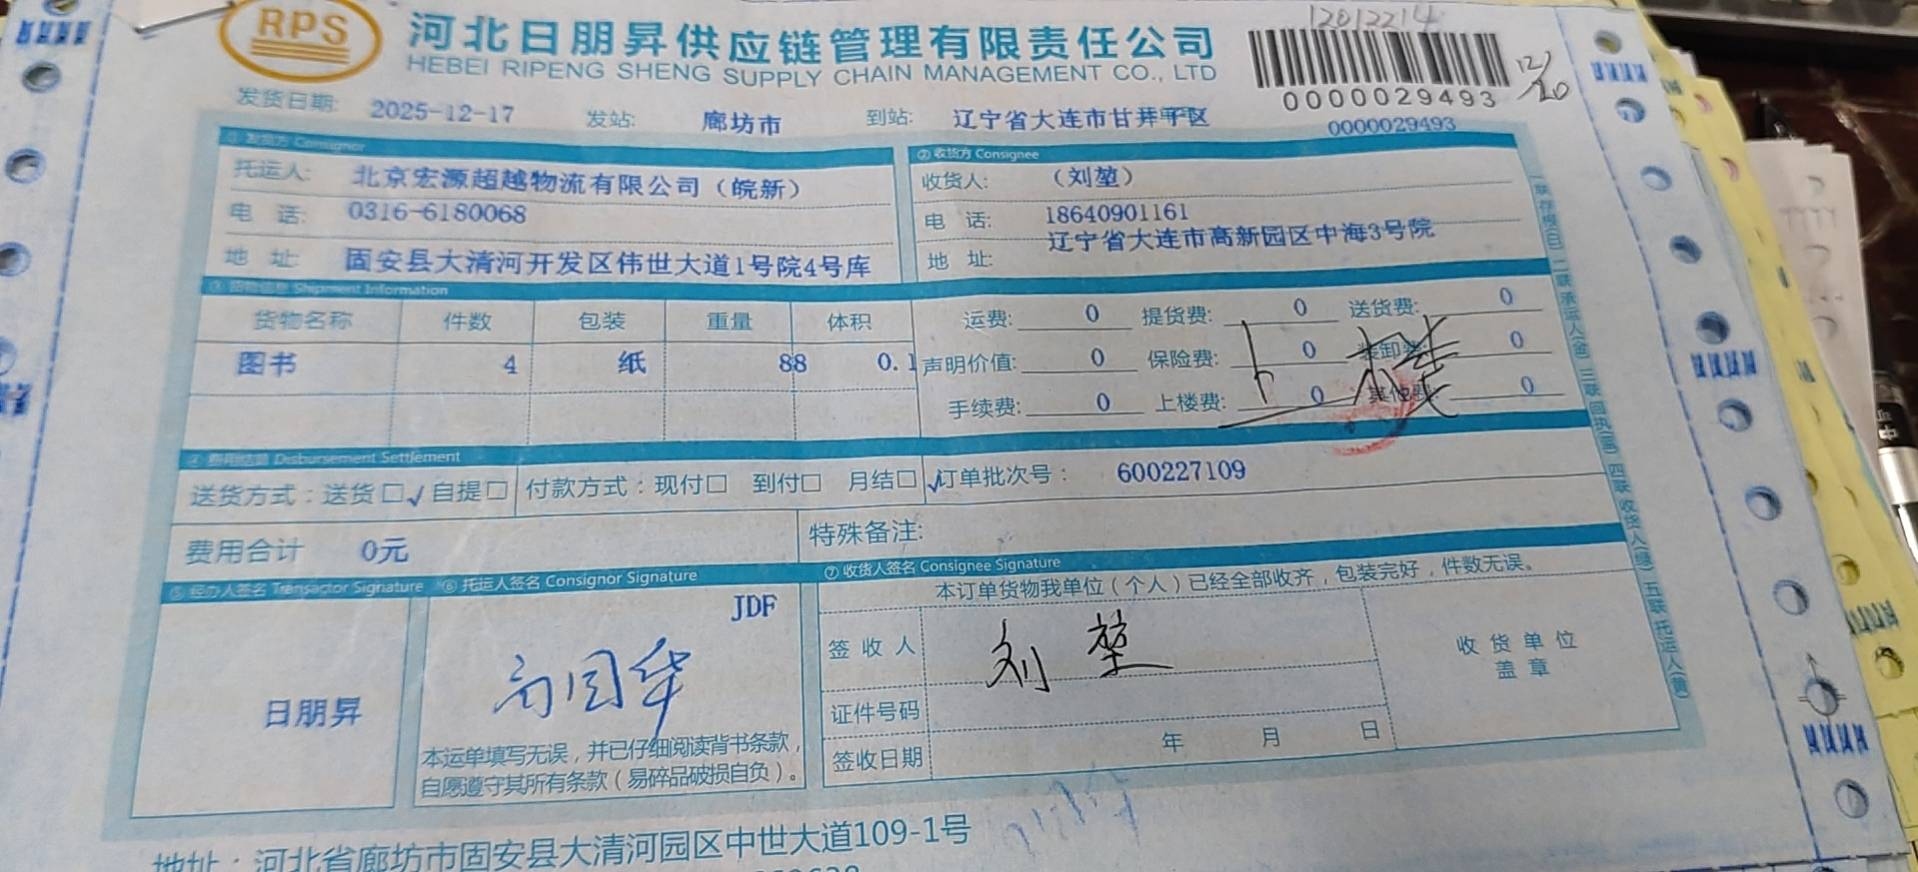 RPS
河北日朋昇供应链管理有限责任公司
HEBEI RIPENG SHENG SUPPLY CHAIN MANAGEMENT CO., LTD
12012214
0000029493
0000029493
12/20
发货日期: 2025-12-17 发站: 廊坊市 到站: 辽宁省大连市甘井子区
① 发货方 Consignor
托运人: 北京宏源超越物流有限公司（皖新）
电 话: 0316-6180068
地 址: 固安县大清河开发区伟世大道1号院4号库
② 收货方 Consignee
收货人: （刘堃）
电 话: 18640901161
地 址: 辽宁省大连市高新园区中海3号院
③ 货物信息 Shipment Information
货物名称 件数 包装 重量 体积
图书 4 纸 88 0.1
运费: 0 提货费: 0 送货费: 0
声明价值: 0 保险费: 0 装卸费: 0
手续费: 0 上楼费: 0 其他费: 0
④ 费用结算 Disbursement Settlement
送货方式：送货□√自提□ 付款方式：现付□ 到付□ 月结□√ 订单批次号： 600227109
费用合计 0元 特殊备注:
⑤ 经办人签名 Transactor Signature
日朋昇
⑥ 托运人签名 Consignor Signature
JDF
本运单填写无误，并已仔细阅读背书条款，
自愿遵守其所有条款（易碎品破损自负）。
⑦ 收货人签名 Consignee Signature
本订单货物我单位（个人）已经全部收齐，包装完好，件数无误。
签 收 人 刘堃
证件号码
签收日期 年 月 日
收 货 单 位
盖 章
一联存根(白) 二联承运人(金) 三联回执(蓝) 四联收货人(绿) 五联托运人(黄)
地址：河北省廊坊市固安县大清河园区中世大道109-1号